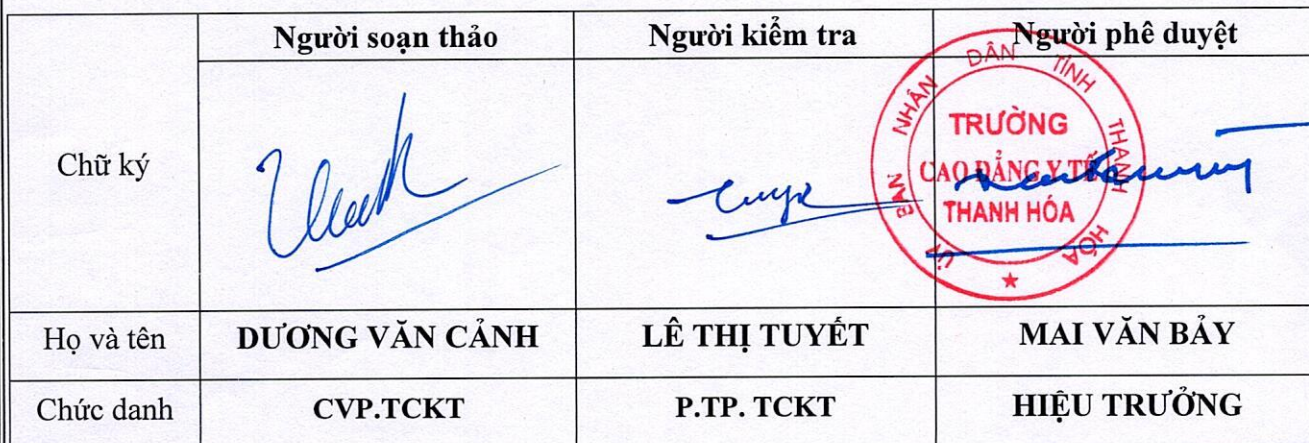 Người soạn thảo Người kiểm tra Người phê duyệt
Chữ ký
ỦY BAN NHÂN DÂN TỈNH THANH HÓA
TRƯỜNG
CAO ĐẲNG Y TẾ
THANH HÓA
Họ và tên DƯƠNG VĂN CẢNH LÊ THỊ TUYẾT MAI VĂN BẢY
Chức danh CVP.TCKT P.TP. TCKT HIỆU TRƯỞNG